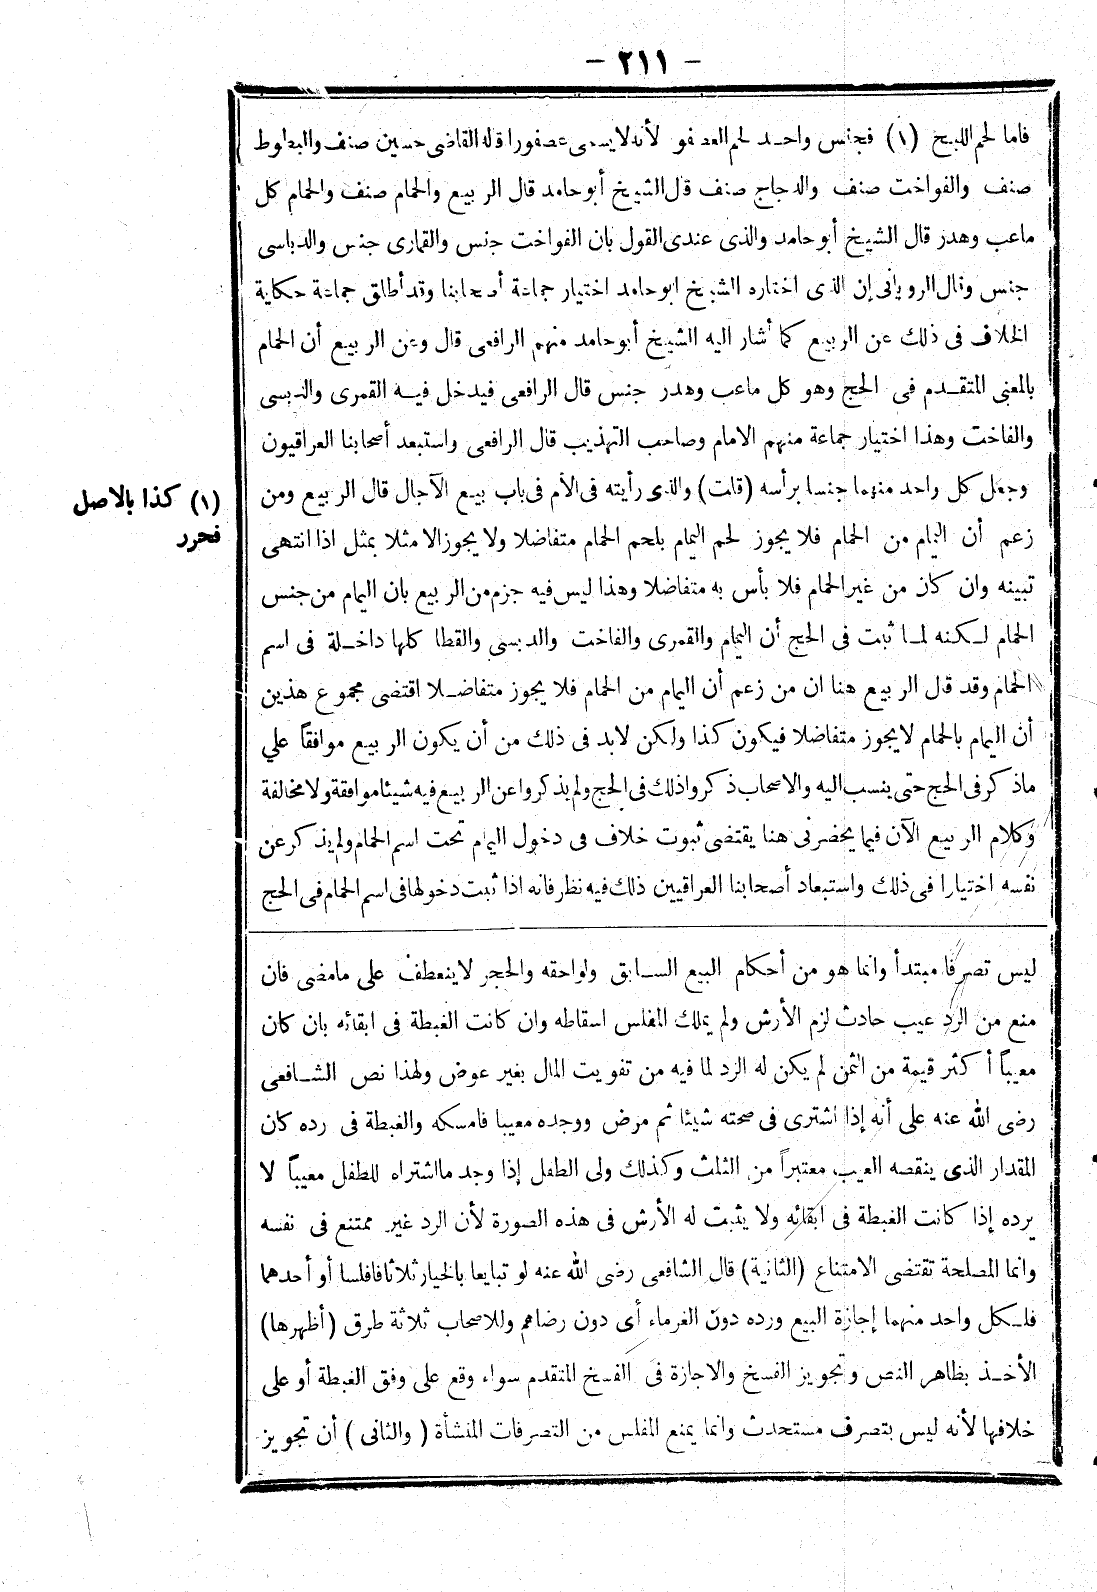 - ٢١١ -
فاما لحم اللبيخ (١) فجنس واحد لحم العصفو لأنه لا يسمى عصفورا قاله القاضى حسين صنف والبطوط
صنف والفواخت صنف والدجاج صنف قال الشيخ أبو حامد قال الربيع والحمام صنف والحمام كل
ماعب وهدر قال الشيخ أبو حامد والذى عندى القول بان الفواخت جنس والقمارى جنس والدباسى
جنس وقال الرويانى إن الذى اختاره الشيخ ابو حامد اختيار جماعة أصحابنا وقد أطلق جماعة حكاية
الخلاف فى ذلك عن الربيع كما أشار اليه الشيخ أبو حامد منهم الرافعى قال وعن الربيع أن الحمام
بالمعنى المتقدم فى الحج وهو كل ماعب وهدر جنس قال الرافعى فيدخل فيه القمرى والدبسى
والفاخت وهذا اختيار جماعة منهم الامام وصاحب التهذيب قال الرافعى واستبعد أصحابنا العراقيون
وجعل كل واحد منهما جنسا برأسه (قلت) والذى رأيته فى الأم فى باب بيع الآجال قال الربيع ومن
زعم أن اليمام من الحمام فلا يجوز لحم اليمام بلحم الحمام متفاضلا ولا يجوز الا مثلا بمثل اذا انتهى
تبينه وان كان من غير الحمام فلا بأس به متفاضلا وهذا ليس فيه جزم من الربيع بان اليمام من جنس
الحمام لكنه لما ثبت فى الحج أن اليمام والقمرى والفاخت والدبسى والقطا كلها داخلة فى اسم
الحمام وقد قال الربيع هنا ان من زعم أن اليمام من الحمام فلا يجوز متفاضلا اقتضى مجموع هذين
أن اليمام بالحمام لا يجوز متفاضلا فيكون كذا ولكن لابد فى ذلك من أن يكون الربيع موافقاً علي
ماذكر فى الحج حتى ينسب اليه والاصحاب ذكروا ذلك فى الحج ولم يذكروا عن الربيع فيه شيئا موافقة ولا مخالفة
وكلام الربيع الآن فيما يحضرنى هنا يقتضى ثبوت خلاف فى دخول اليمام تحت اسم الحمام ولم يذكر عن
نفسه اختيارا فى ذلك واستبعاد أصحابنا العراقيين ذلك فيه نظر فانه اذا ثبت دخولها فى اسم الحمام فى الحج
(١) كذا بالاصل
فحرر
ليس تصرفا مبتدأ وانما هو من أحكام البيع السابق ولواحقه والحجر لا ينعطف على مامضى فان
منع من الرد عيب حادث لزم الأرش ولم يملك المفلس اسقاطه وان كانت الغبطة فى ابقائه بان كان
معيباً أكثر قيمة من الثمن لم يكن له الرد لما فيه من تفويت المال بغير عوض ولهذا نص الشافعى
رضى الله عنه على أنه إذا اشترى فى صحته شيئا ثم مرض ووجده معيبا فامسكه والغبطة فى رده كان
المقدار الذى ينقصه العيب معتبراً من الثلث وكذلك ولى الطفل إذا وجد مااشتراه للطفل معيباً لا
يرده إذا كانت الغبطة فى ابقائه ولا يثبت له الأرش فى هذه الصورة لأن الرد غير ممتنع فى نفسه
وانما المصلحة تقتضى الامتناع (الثانية) قال الشافعى رضى الله عنه لو تبايعا بالخيار ثلاثا فافلسا أو أحدهما
فلكل واحد منهما إجازة البيع ورده دون الغرماء أى دون رضاهم وللاصحاب ثلاثة طرق (أظهرها)
الأخذ بظاهر النص وتجويز الفسخ والاجازة فى الفسخ المتقدم سواء وقع على وفق الغبطة أو على
خلافها لأنه ليس بتصرف مستحدث وانما يمنع المفلس من التصرفات المنشأة (والثانى) أن تجويز